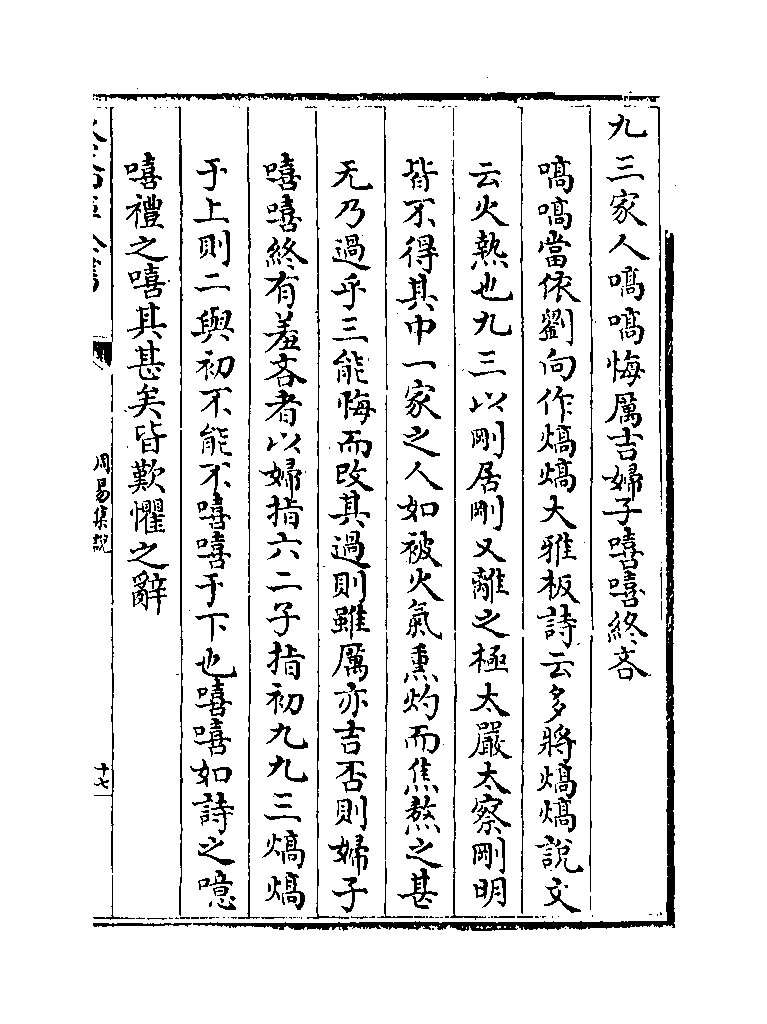 九三家人嗃嗃悔厲吉婦子嘻嘻終吝
嗃嗃當依劉向作熇熇大雅板詩云多將熇熇說文
云火熱也九三以剛居剛又離之極太嚴太察剛明
皆不得其中一家之人如被火氣熏灼而焦熬之甚
无乃過乎三能悔而改其過則雖厲亦吉否則婦子
嘻嘻終有羞吝者以婦指六二子指初九九三熇熇
于上則二與初不能不嘻嘻于下也嘻嘻如詩之噫
嘻禮之嘻其甚矣皆歎懼之辭
周易集說
十七